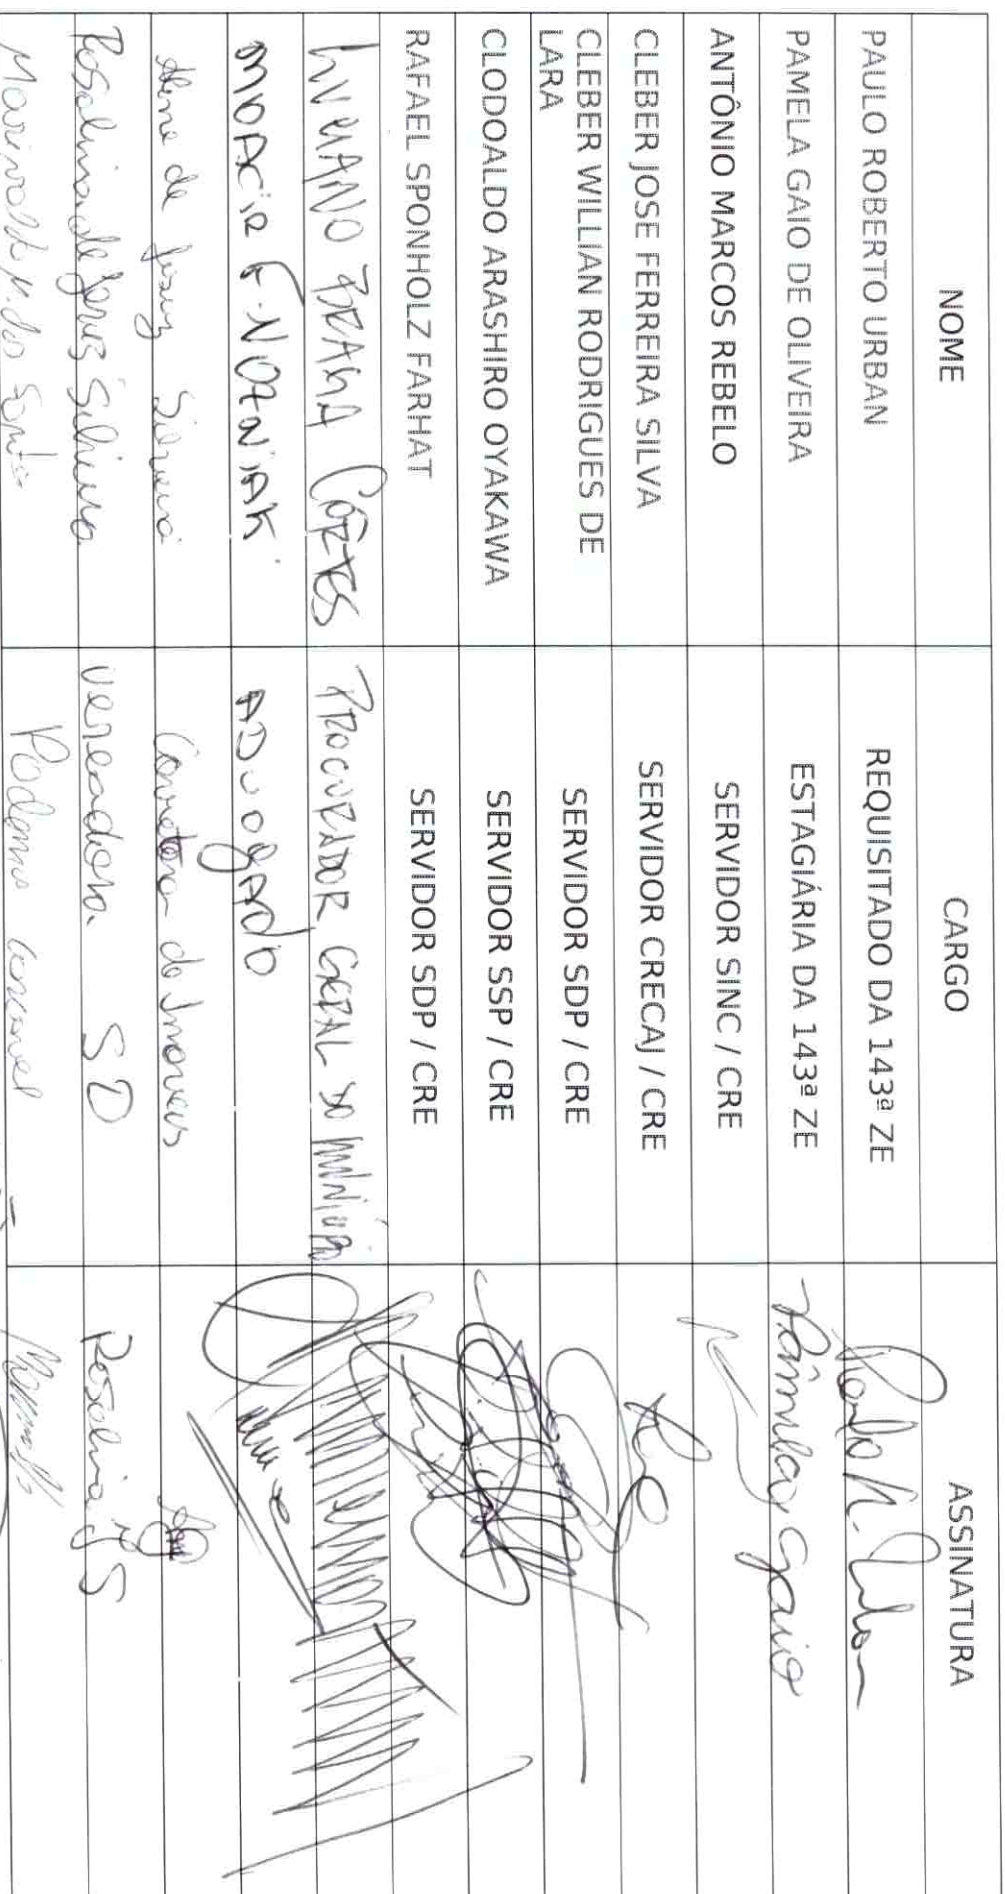 NOME CARGO ASSINATURA
PAULO ROBERTO URBAN REQUISITADO DA 143ª ZE
PAMELA GAIO DE OLIVEIRA ESTAGIÁRIA DA 143ª ZE Pâmela Gaio
ANTÔNIO MARCOS REBELO SERVIDOR SINC / CRE
CLEBER JOSE FERREIRA SILVA SERVIDOR CRECAJ / CRE
CLEBER WILLIAN RODRIGUES DE
LARA SERVIDOR SDP / CRE
CLODOALDO ARASHIRO OYAKAWA SERVIDOR SSP / CRE
RAFAEL SPONHOLZ FARHAT SERVIDOR SDP / CRE
CÔRTES PROCURADOR GERAL DO
MOACIR ADVOGADO
de Jesus Silveira Corretora de Imoveis
Rosalina de Jesus Silveira vereadora SD Rosalina JS
Podemos